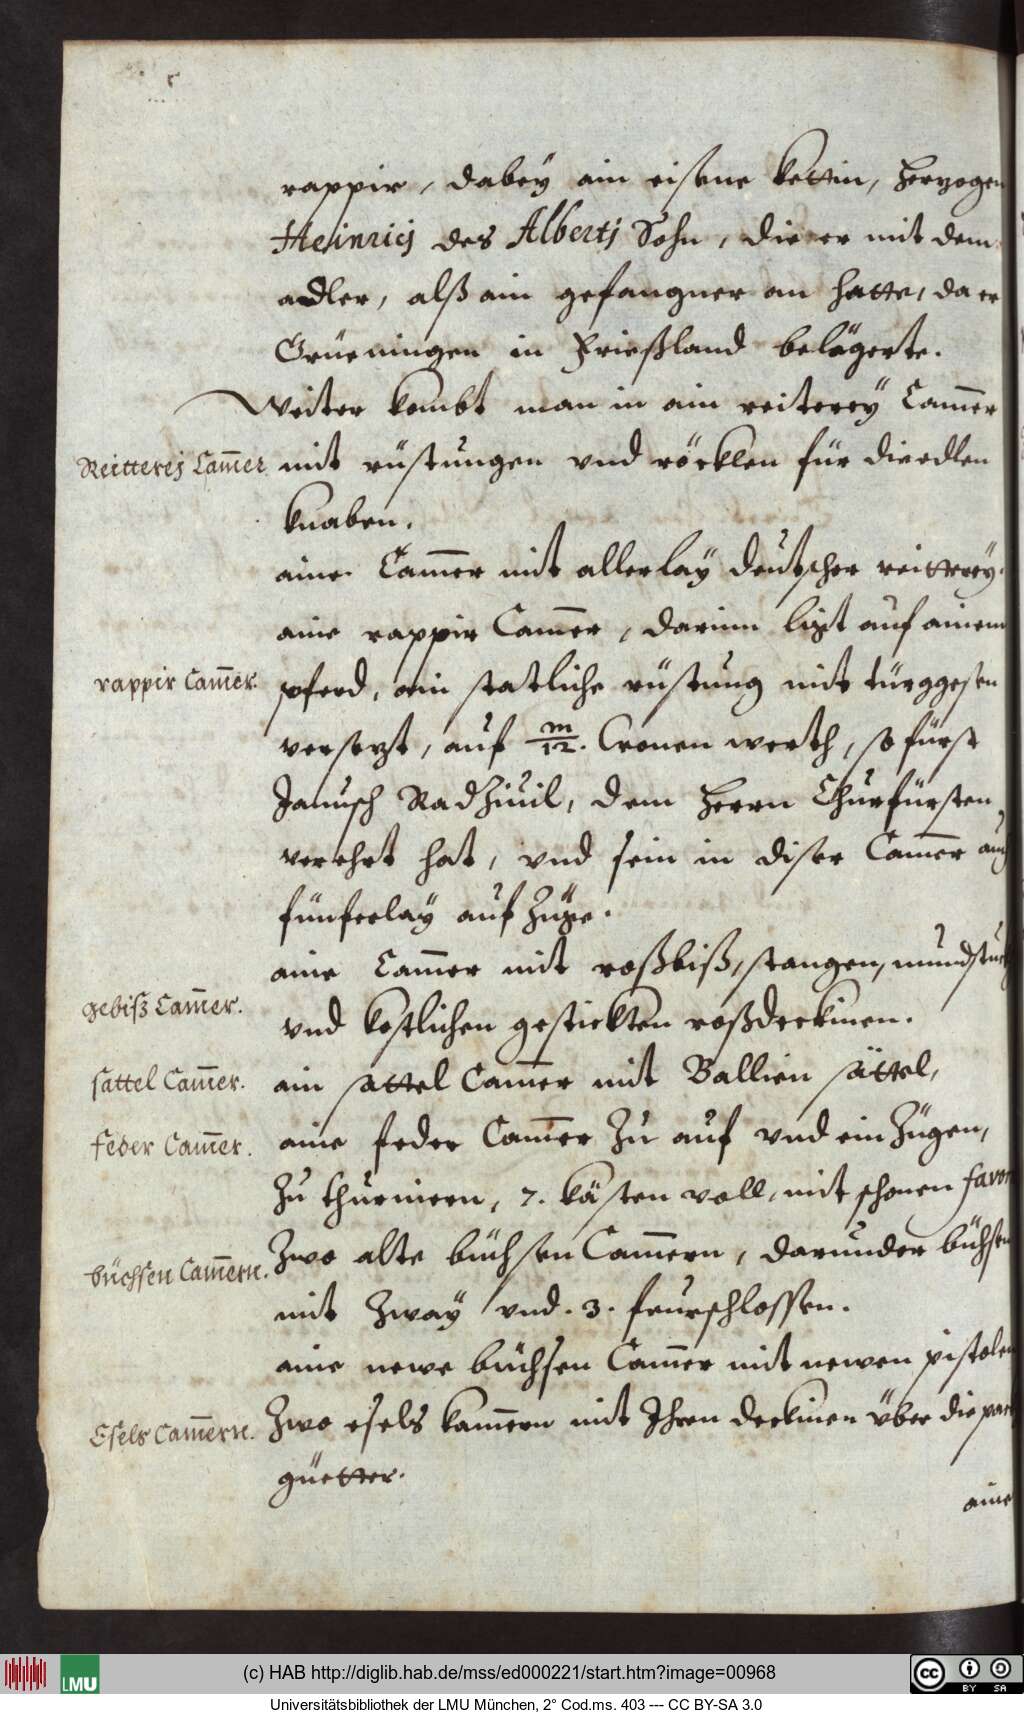 rappir, dabeÿ ain eisene kettin, herzogen
Heinricj des Albertj Sohn, die er mit dem
adler, alß ain gefangner an hatte, da er
Grüeningen in Frießland belägerte.
Weiter kombt man in ain reitereÿ Cam̅er
Reitterej Cam̅er
mit rüstungen vnd röcklen für die edlen
knaben.
aine Cam̅er mit allerlaÿ deutscher reittereÿ.
aine rappir Cam̅er, darinn ligt auf ainem
rappir Cam̅er.
pferd, ain statliche rüstung mit türggesen
versezt, auf m/12. Cronen werth, so fürst
Janusch Radziuil, dem herrn Churfürsten
verehrt hat, vnd sein in diser Cam̅er auch
fünferlaÿ auf Züge.
aine Cam̅er mit roßbiß, stangen, mundstuck
gebiß Cam̅er.
vnd kostlichen gestickten roßdeckinen.
sattel Cam̅er.
ain sattel Cam̅er mit Ballien sättel,
feder Cam̅er.
aine feder Cam̅er Zu auf vnd ein Zügen,
Zu thurniern, 7. kästen voll, mit schonen favor
büchsen Cam̅ern.
Zwo alte büchsen Cam̅ern, darunder büchsen
mit Zwaÿ vnd .3. feurschlossen.
aine newe büchsen Cam̅er mit newen pistolen
Esels Cam̅ern.
Zwo esels kam̅ern mit Ihren deckinen über die pact
güetter.
aine
(c) HAB http://diglib.hab.de/mss/ed000221/start.htm?image=00968
LMU
cc BY SA
Universitätsbibliothek der LMU München, 2° Cod.ms. 403 --- CC BY-SA 3.0